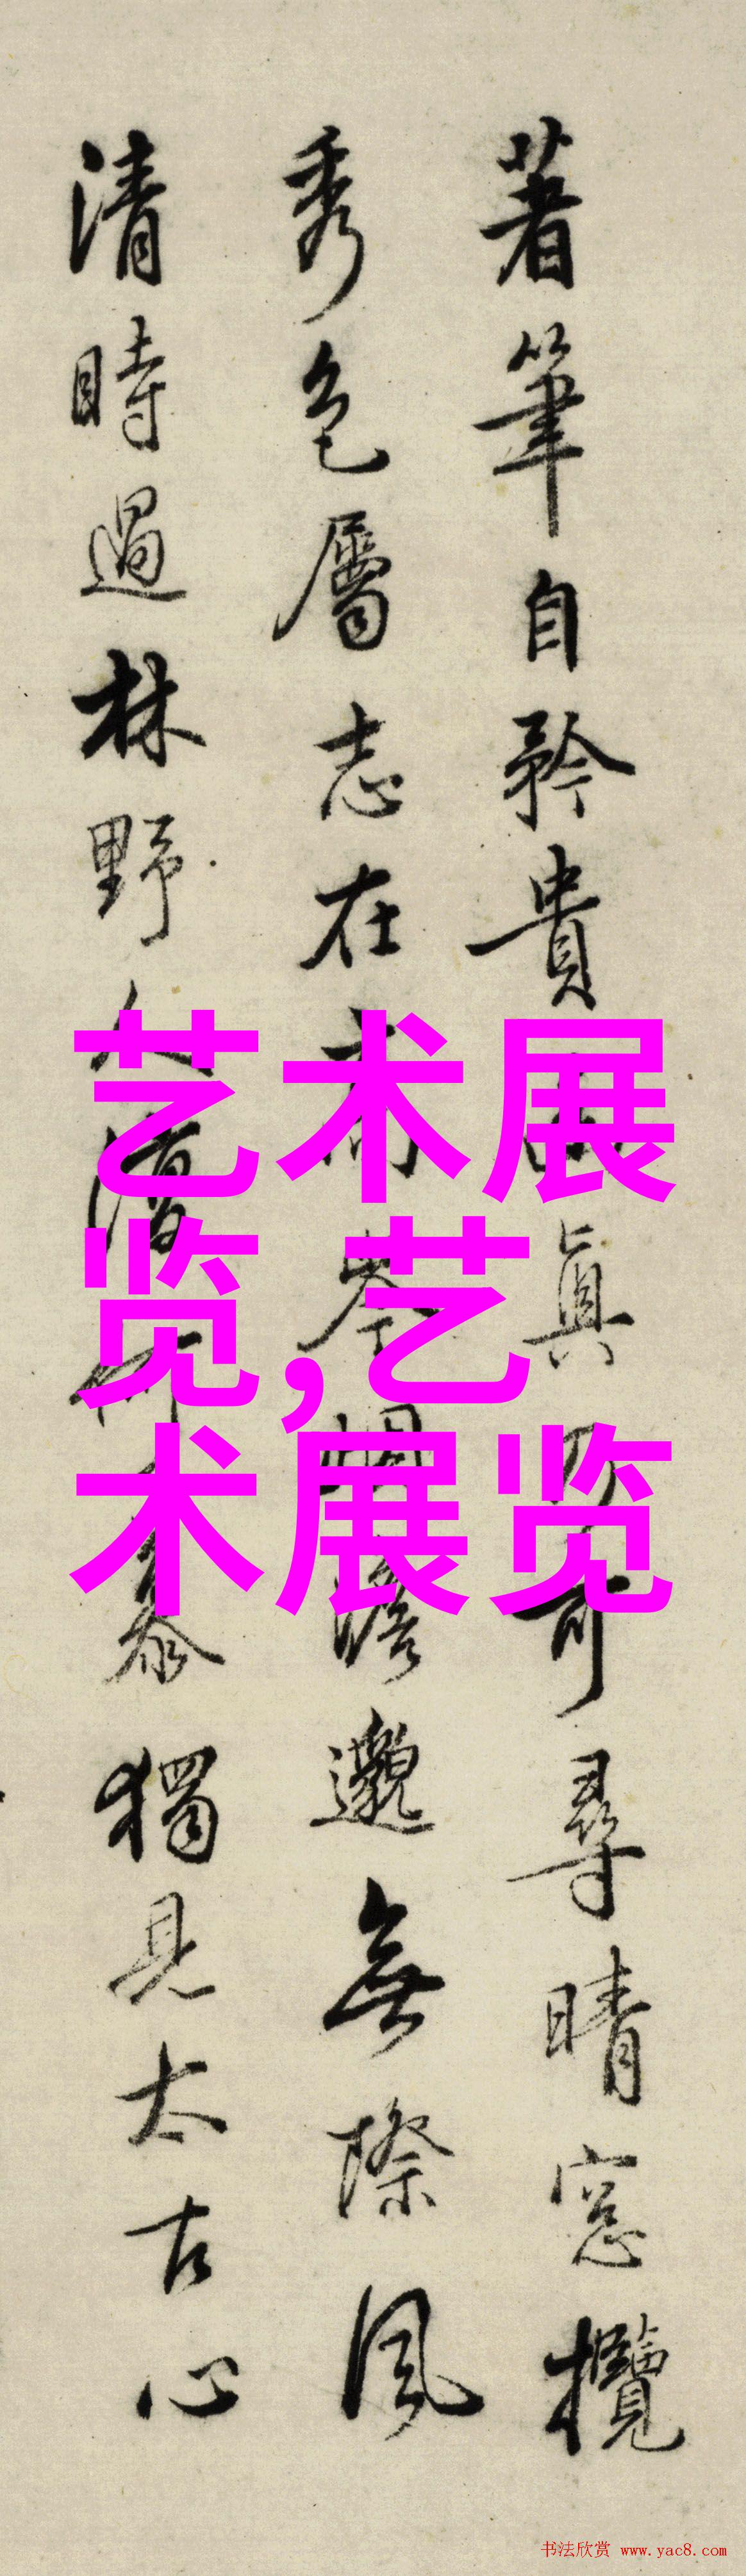 著筆自矜貴真可尋晴窓攬
秀色屬志在岑澹邈無際風
清時過林野人慕獨見太古心
艺术展
览,艺
术展览
书法欣赏 www.yac8.com